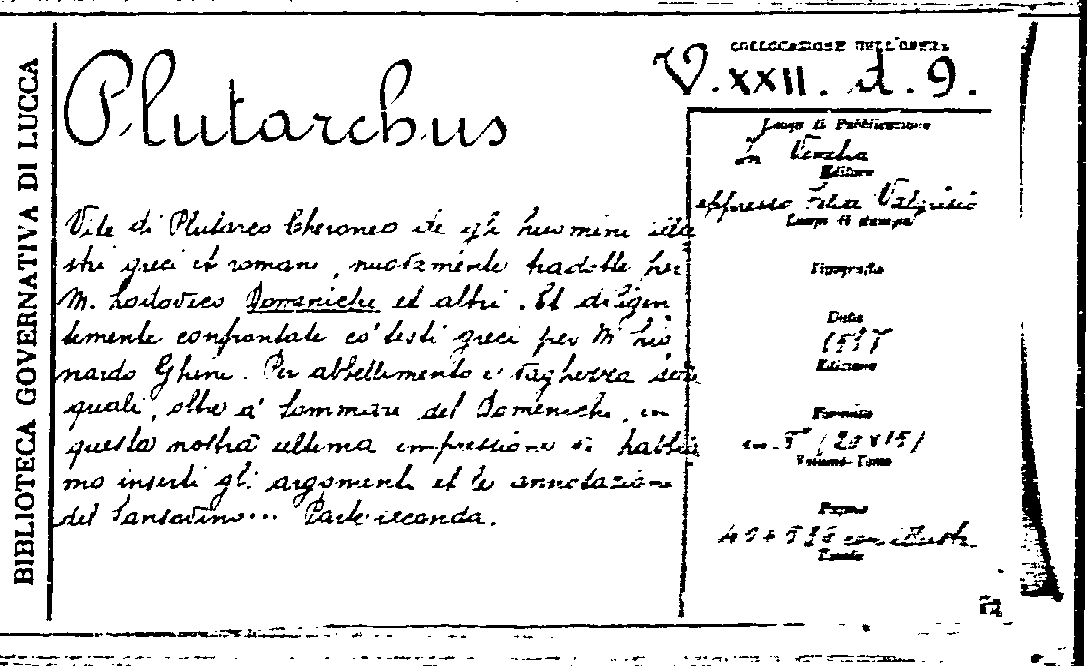 BIBLIOTECA GOVERNATIVA DI LUCCA
Plutarchus
COLLOCAZIONE DELL'OPERA
V. XXII. d. 9.
Vite di Plutarco Cheroneo de gli huomini illu
stri greci et romani, nuovamente tradotte per
M. Lodovico Domenichi et altri. Et diligen
temente confrontate co' testi greci per M. Lio
nardo Ghini. Per abbellimento e vaghezza
quali, oltre a' sommari del Domenichi, in
questa nostra ultima impressione vi habbia
mo inserti gli argomenti et le annotazioni
del Sansovino... Parte seconda.
Luogo di Pubblicazione
In Venetia
Editore
appresso Valgrisio
Luogo di stampa
Tipografia
Data
Edizione
Formato
in
Volume-Tomo
Pagine
con illustr.